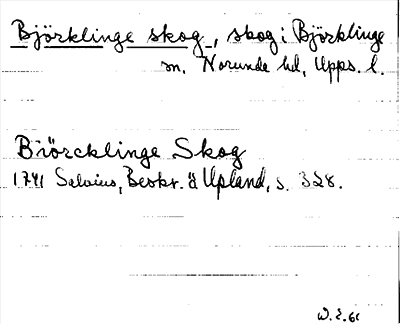 Björklinge skog, skog i Björklinge
sn, Norunda hd, Upps. l.
Biörcklinge Skog
1741 Salvius, Beskr. ö Upland, s. 328.
W.E. 61